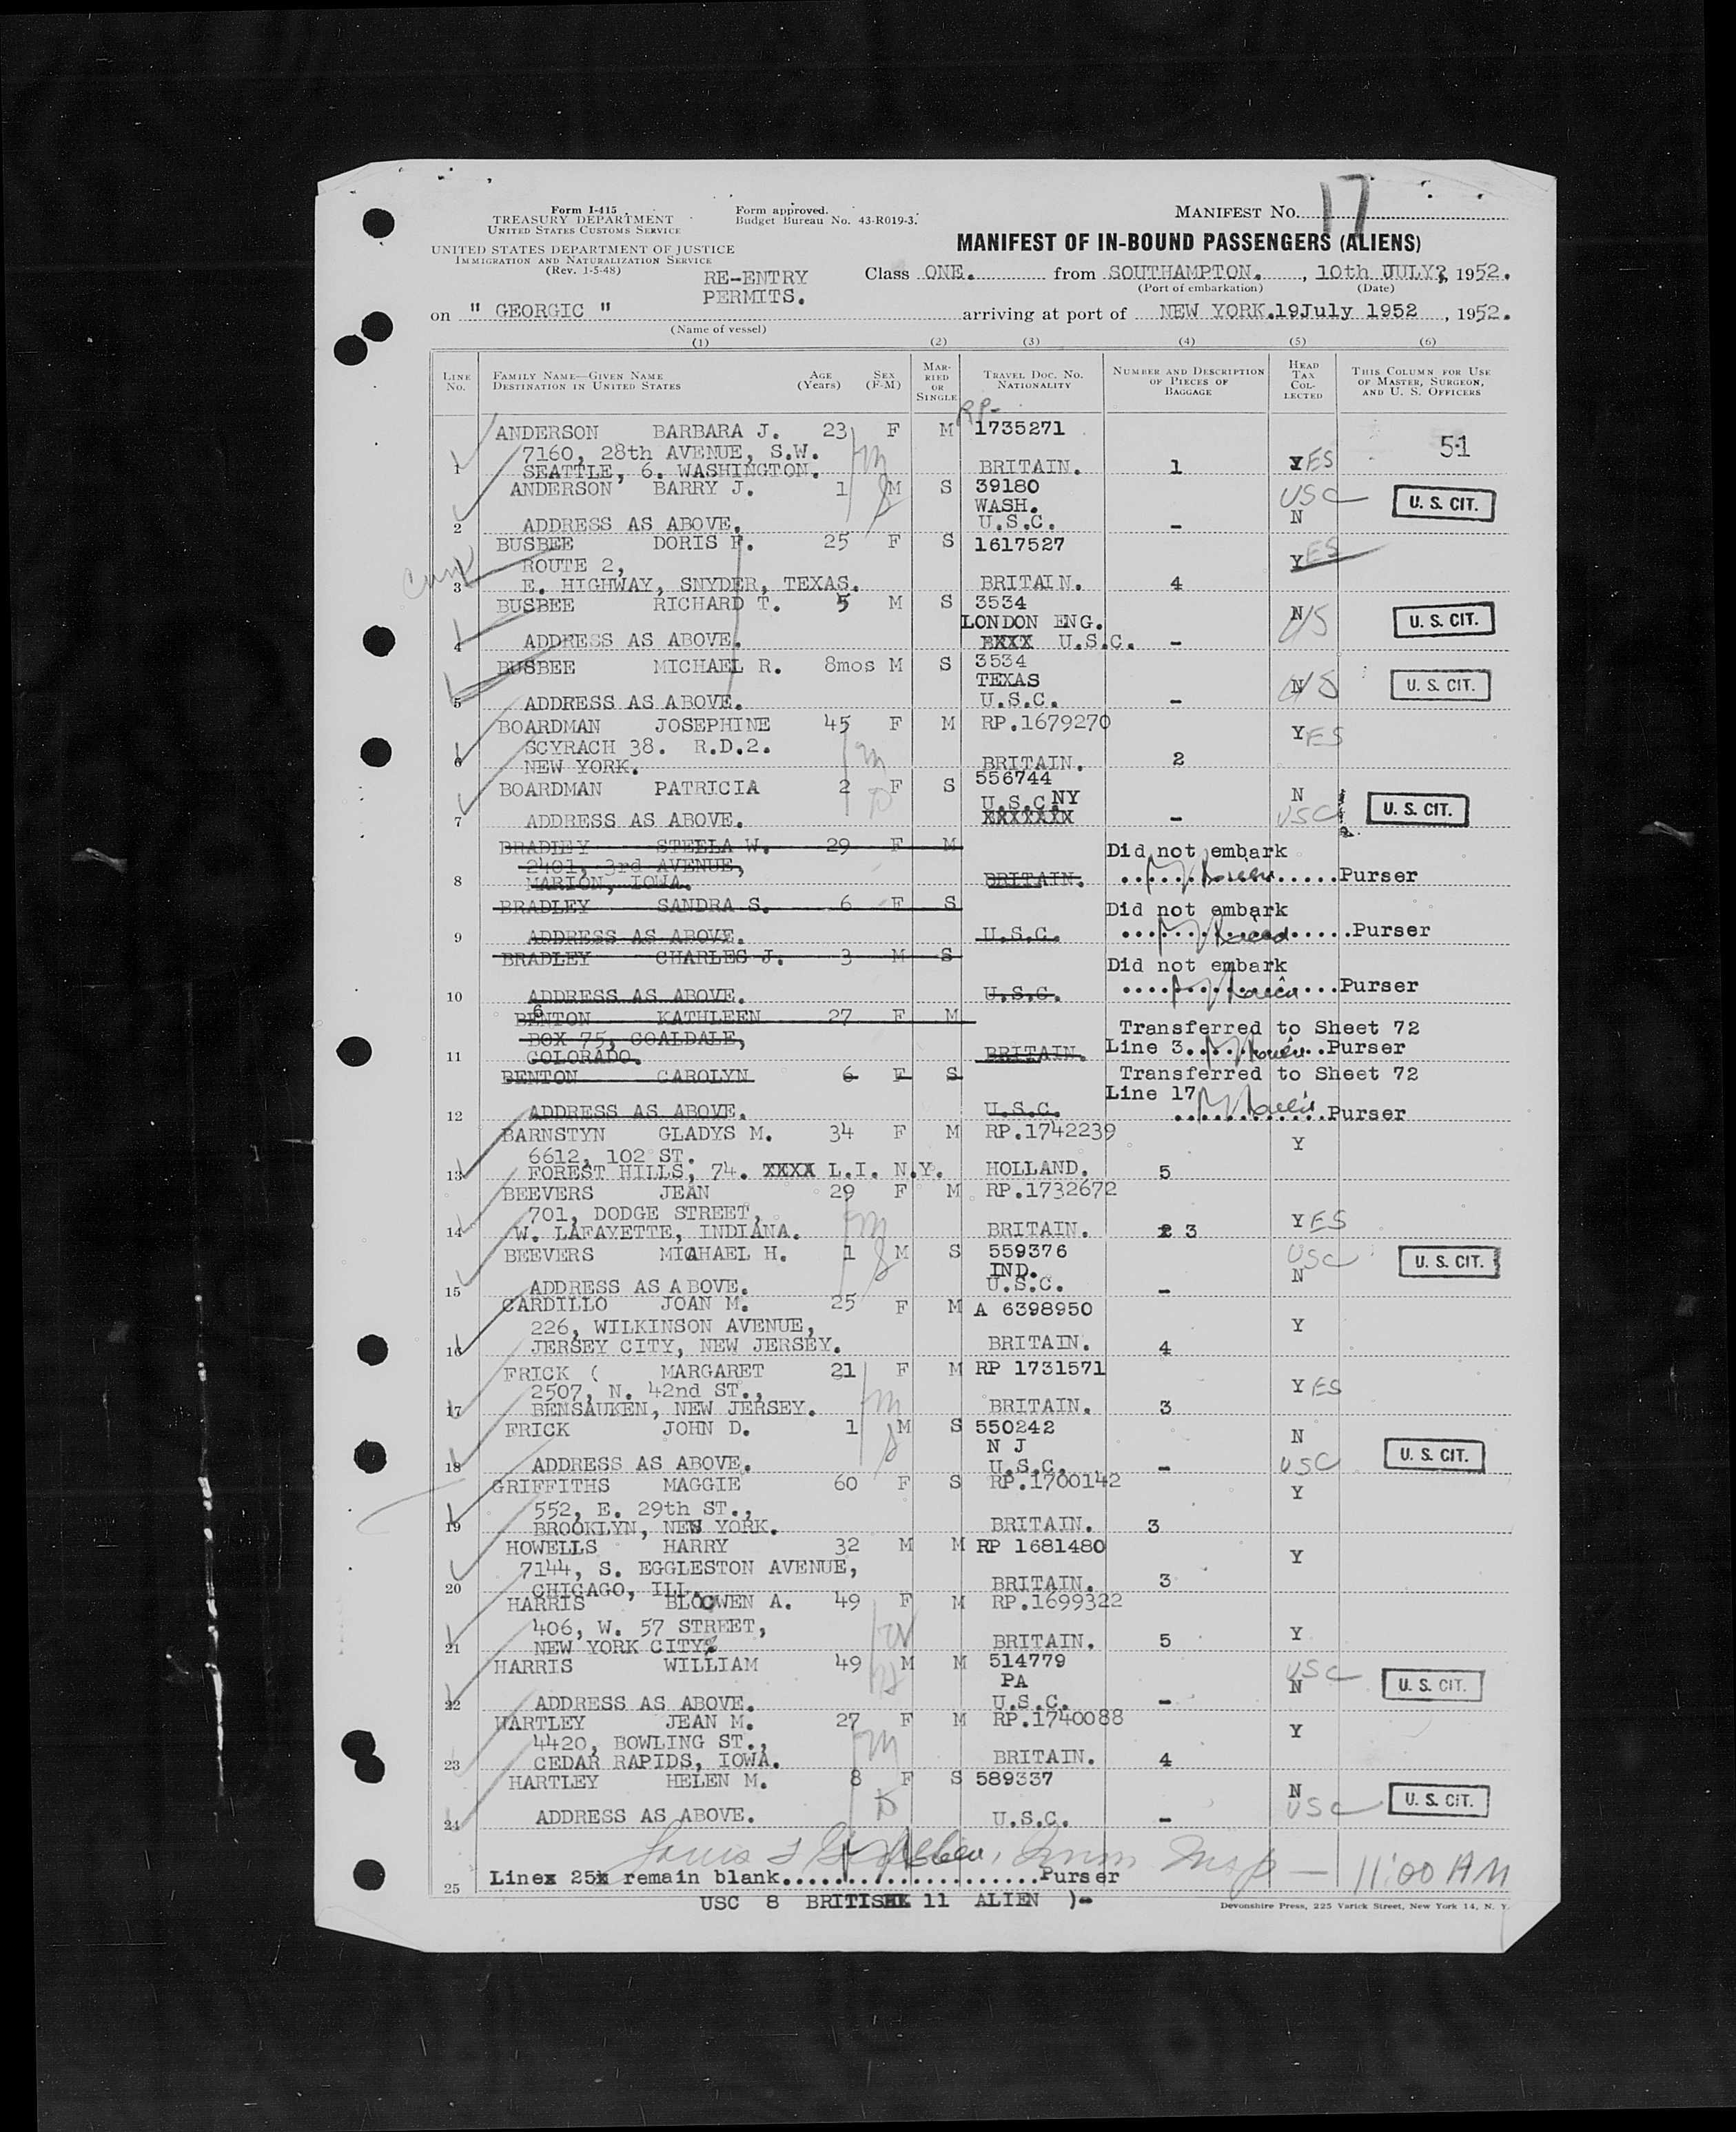 Form I-415
TREASURY DEPARTMENT
UNITED STATES CUSTOMS SERVICE
UNITED STATES DEPARTMENT OF JUSTICE
IMMIGRATION AND NATURALIZATION SERVICE
(Rev. 1-5-48)
Form approved.
Budget Bureau No. 43-R019-3.
MANIFEST No. 17
MANIFEST OF IN-BOUND PASSENGERS (ALIENS)
RE-ENTRY
PERMITS.
Class ONE. from SOUTHAMPTON. , 10th JULY, 1952.
(Port of embarkation) (Date)
on " GEORGIC " arriving at port of NEW YORK.19July 1952 , 1952.
(Name of vessel)
(1) (2) (3) (4) (5) (6)
LINE No. FAMILY NAME—GIVEN NAME DESTINATION IN UNITED STATES AGE (Years) SEX (F-M) MARRIED OR SINGLE TRAVEL DOC. NO. NATIONALITY NUMBER AND DESCRIPTION OF PIECES OF BAGGAGE HEAD TAX COLLECTED THIS COLUMN FOR USE OF MASTER, SURGEON, AND U. S. OFFICERS
RP-
ANDERSON BARBARA J. 23 F M 1735271
7160, 28th AVENUE, S.W. 51
1 SEATTLE, 6. WASHINGTON. BRITAIN. 1 YES
ANDERSON BARRY J. 1 M S 39180 USC U. S. CIT.
WASH. N
2 ADDRESS AS ABOVE. U.S.C. -
BUSBEE DORIS F. 25 F S 1617527
ROUTE 2, YES
3 E. HIGHWAY, SNYDER, TEXAS. BRITAIN. 4
BUSBEE RICHARD T. 5 M S 3534
LONDON ENG. N US U. S. CIT.
4 ADDRESS AS ABOVE. BXXX U.S.C. -
BUSBEE MICHAEL R. 8mos M S 3534
TEXAS N US U. S. CIT.
5 ADDRESS AS ABOVE. U.S.C. -
BOARDMAN JOSEPHINE 45 F M RP.1679270
SCYRACH 38. R.D.2. YES
6 NEW YORK. BRITAIN. 2
BOARDMAN PATRICIA 2 F S 556744
U.S.C NY N U. S. CIT.
7 ADDRESS AS ABOVE. XXXXAIX - USC
BRADLEY STELLA W. 29 F M Did not embark
2401, 3rd AVENUE,
8 MARION, IOWA. BRITAIN. Purser
BRADLEY SANDRA S. 6 F S Did not embark
9 ADDRESS AS ABOVE. U.S.C. Purser
BRADLEY CHARLES J. 3 M S Did not embark
10 ADDRESS AS ABOVE. U.S.C. Purser
6
BENTON KATHLEEN 27 F M Transferred to Sheet 72
BOX 75, COALDALE, Line 3. Purser
11 COLORADO. BRITAIN.
BENTON CAROLYN 6 F S Transferred to Sheet 72
Line 17
12 ADDRESS AS ABOVE. U.S.C. Purser
BARNSTYN GLADYS M. 34 F M RP.1742239 Y
6612, 102 ST.
13 FOREST HILLS, 74. XXXX L.I. N.Y. HOLLAND. 5
BEEVERS JEAN 29 F M RP.1732672
701, DODGE STREET, YES
14 W. LAFAYETTE, INDIANA. BRITAIN. 2 3
BEEVERS MICHAEL H. 1 M S 559376 USC U. S. CIT.
IND. N
15 ADDRESS AS ABOVE. U.S.C. -
CARDILLO JOAN M. 25 F M A 6398950
226, WILKINSON AVENUE, Y
16 JERSEY CITY, NEW JERSEY. BRITAIN. 4
FRICK ( MARGARET 21 F M RP 1731571
2507, N. 42nd ST., YES
17 BENSAUKEN, NEW JERSEY. BRITAIN. 3
FRICK JOHN D. 1 M S 550242 N
N J U. S. CIT.
18 ADDRESS AS ABOVE. U.S.C. - USC
GRIFFITHS MAGGIE 60 F S RP.1700142 Y
552, E. 29th ST.,
19 BROOKLYN, NEW YORK. BRITAIN. 3
HOWELLS HARRY 32 M M RP 1681480 Y
7144, S. EGGLESTON AVENUE,
20 CHICAGO, ILL. BRITAIN. 3
HARRIS BLOCWEN A. 49 F M RP.1699322
406, W. 57 STREET, Y
21 NEW YORK CITY. BRITAIN. 5
HARRIS WILLIAM 49 M M 514779 USC
PA N U. S. CIT.
22 ADDRESS AS ABOVE. U.S.C. -
HARTLEY JEAN M. 27 F M RP.1740088 Y
4420, BOWLING ST.,
23 CEDAR RAPIDS, IOWA. BRITAIN. 4
HARTLEY HELEN M. 8 F S 589337 N
USC U. S. CIT.
24 ADDRESS AS ABOVE. U.S.C. -
Imm Insp — 11:00 AM
25 Linex 25x remain blank Purser
USC 8 BRITISH 11 ALIEN )-
Devonshire Press, 225 Varick Street, New York 14, N. Y.